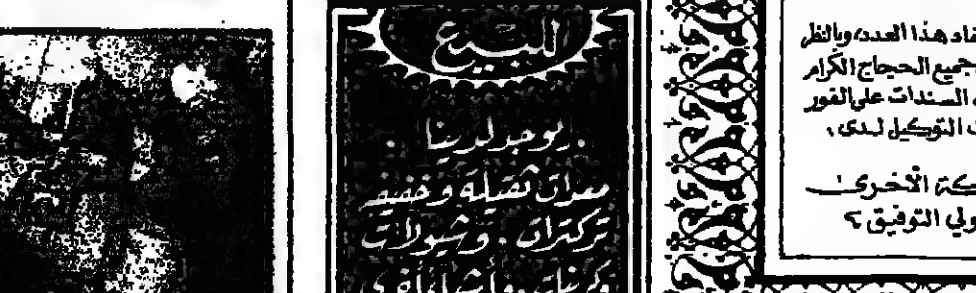 للبيع
يوجد لدينا
معدات ثقيلة وخفيفه
تركترات . وشيولات
وأشياء أخرى
هذا العدد، وبالنظر
جميع الحجاج الكرام
السندات على الفور
التوكيل لدى،
الأخرى
ولي التوفيق؟